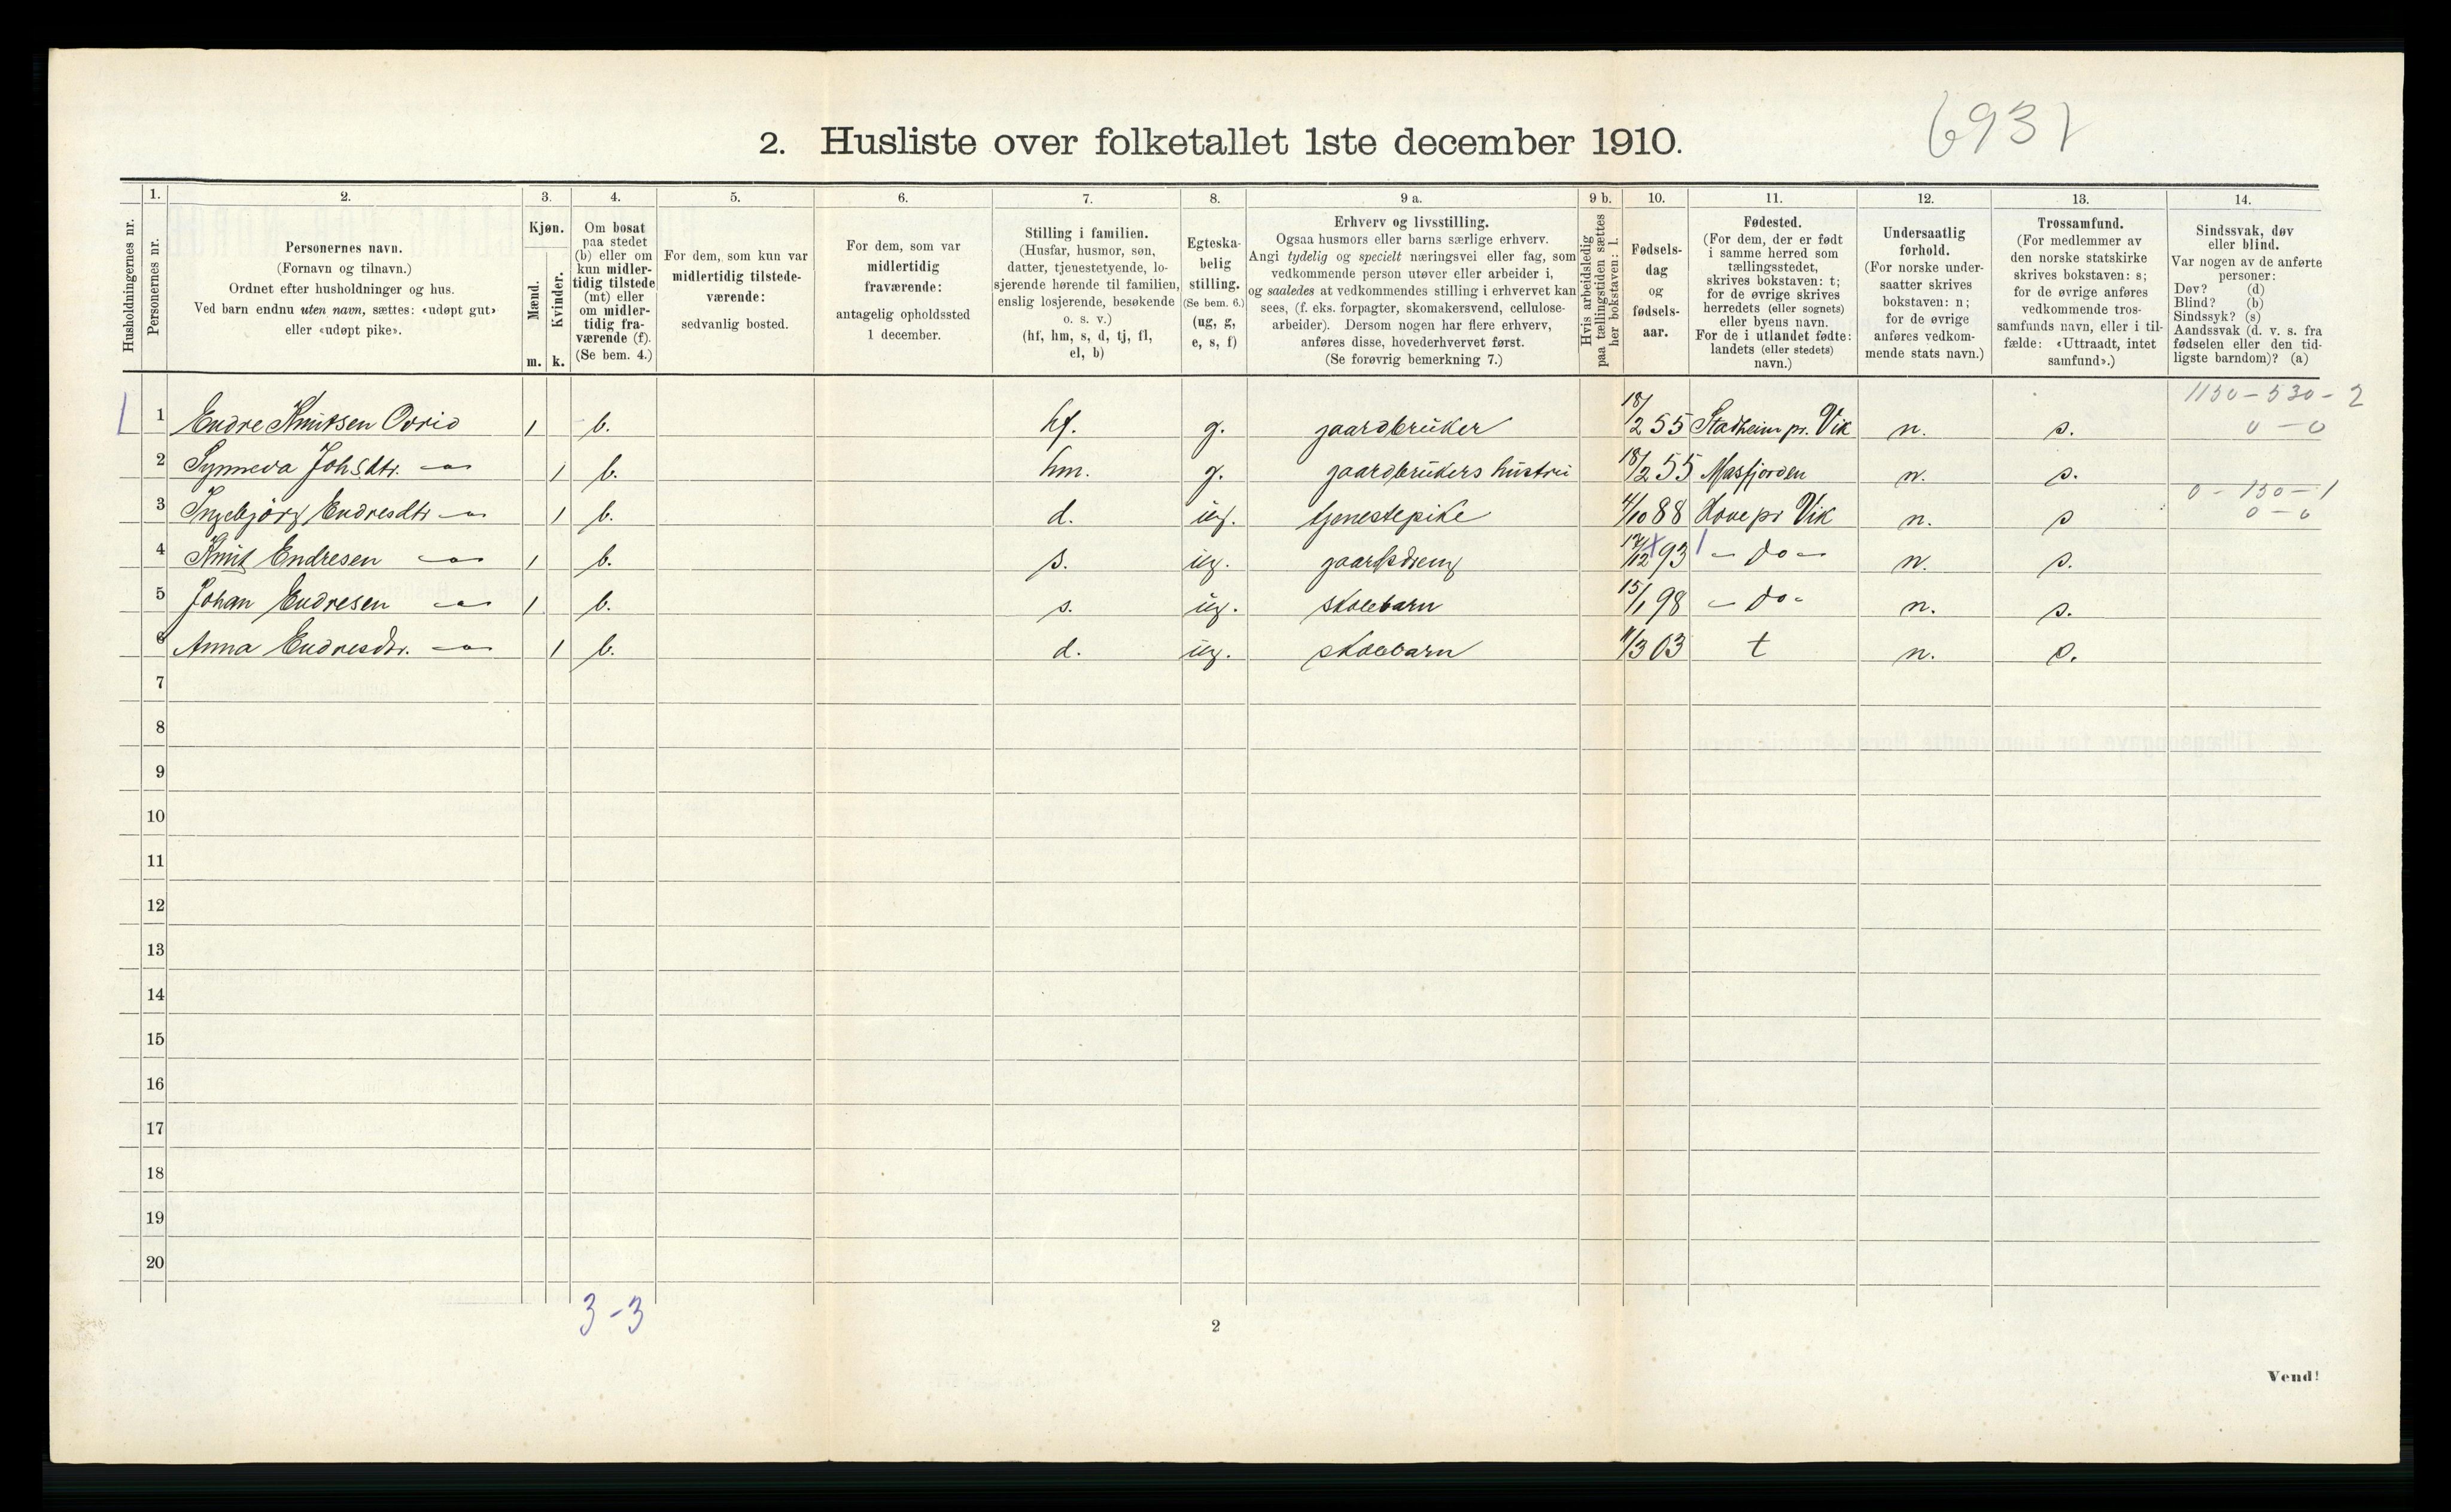 6931
2. Husliste over folketallet 1ste december 1910.
Husholdningernes nr.
1. Personernes nr.
2. Personernes navn. (Fornavn og tilnavn.) Ordnet efter husholdninger og hus. Ved barn endnu uten navn, sættes: «udøpt gut» eller «udøpt pike».
3. Kjøn. Mænd. m. Kvinder. k.
4. Om bosat paa stedet (b) eller om kun midlertidig tilstede (mt) eller om midlertidig fraværende (f). (Se bem. 4.)
5. For dem, som kun var midlertidig tilstedeværende: sedvanlig bosted.
6. For dem, som var midlertidig fraværende: antagelig opholdssted 1 december.
7. Stilling i familien. (Husfar, husmor, søn, datter, tjenestetyende, losjerende hørende til familien, enslig losjerende, besøkende o. s. v.) (hf, hm, s, d, tj, fl, el, b)
8. Egteskabelig stilling. (Se bem. 6.) (ug, g, e, s, f)
9 a. Erhverv og livsstilling. Ogsaa husmors eller barns særlige erhverv. Angi tydelig og specielt næringsvei eller fag, som vedkommende person utøver eller arbeider i, og saaledes at vedkommendes stilling i erhvervet kan sees, (f. eks. forpagter, skomakersvend, cellulosearbeider). Dersom nogen har flere erhverv, anføres disse, hovederhvervet først. (Se forøvrig bemerkning 7.)
9 b. Hvis arbeidsledig paa tællingstiden sættes her bokstaven: l.
10. Fødselsdag og fødselsaar.
11. Fødested. (For dem, der er født i samme herred som tællingsstedet, skrives bokstaven: t; for de øvrige skrives herredets (eller sognets) eller byens navn. For de i utlandet fødte: landets (eller stedets) navn.)
12. Undersaatlig forhold. (For norske undersaatter skrives bokstaven: n; for de øvrige anføres vedkommende stats navn.)
13. Trossamfund. (For medlemmer av den norske statskirke skrives bokstaven: s; for de øvrige anføres vedkommende trossamfunds navn, eller i tilfælde: «Uttraadt, intet samfund».)
14. Sindssvak, døv eller blind. Var nogen av de anførte personer: Døv? (d) Blind? (b) Sindssyk? (s) Aandssvak (d. v. s. fra fødselen eller den tidligste barndom)? (a)
1150 - 530 - 2
0 - 0
1 Endre Knutsen Ovrid 1 b. hf. g. gaardbruker 18/2 55 Stadheim pr. Vik n. s.
2 Synneva Johsdtr. -"- 1 b. hm. g. gaardbrukers hustru 18/2 55 Masfjorden n. s.
0 - 150 - 1
0 - 0
3 Ingebjörg Endresdtr -"- 1 b. d. ug. tjenestepike 4/10 88 Hove pr Vik n. s
4 Knut Endresen -"- 1 b. s. ug. gaardsdreng 17/12 93 - do - n. s.
5 Johan Endresen -"- 1 b. s. ug. skolebarn 15/1 98 - do - n. s.
6 Anna Endresdtr. -"- 1 b. d. ug. skolebarn 11/3 03 t n. s.
7
8
9
10
11
12
13
14
15
16
17
18
19
20
3 - 3
2
Vend!